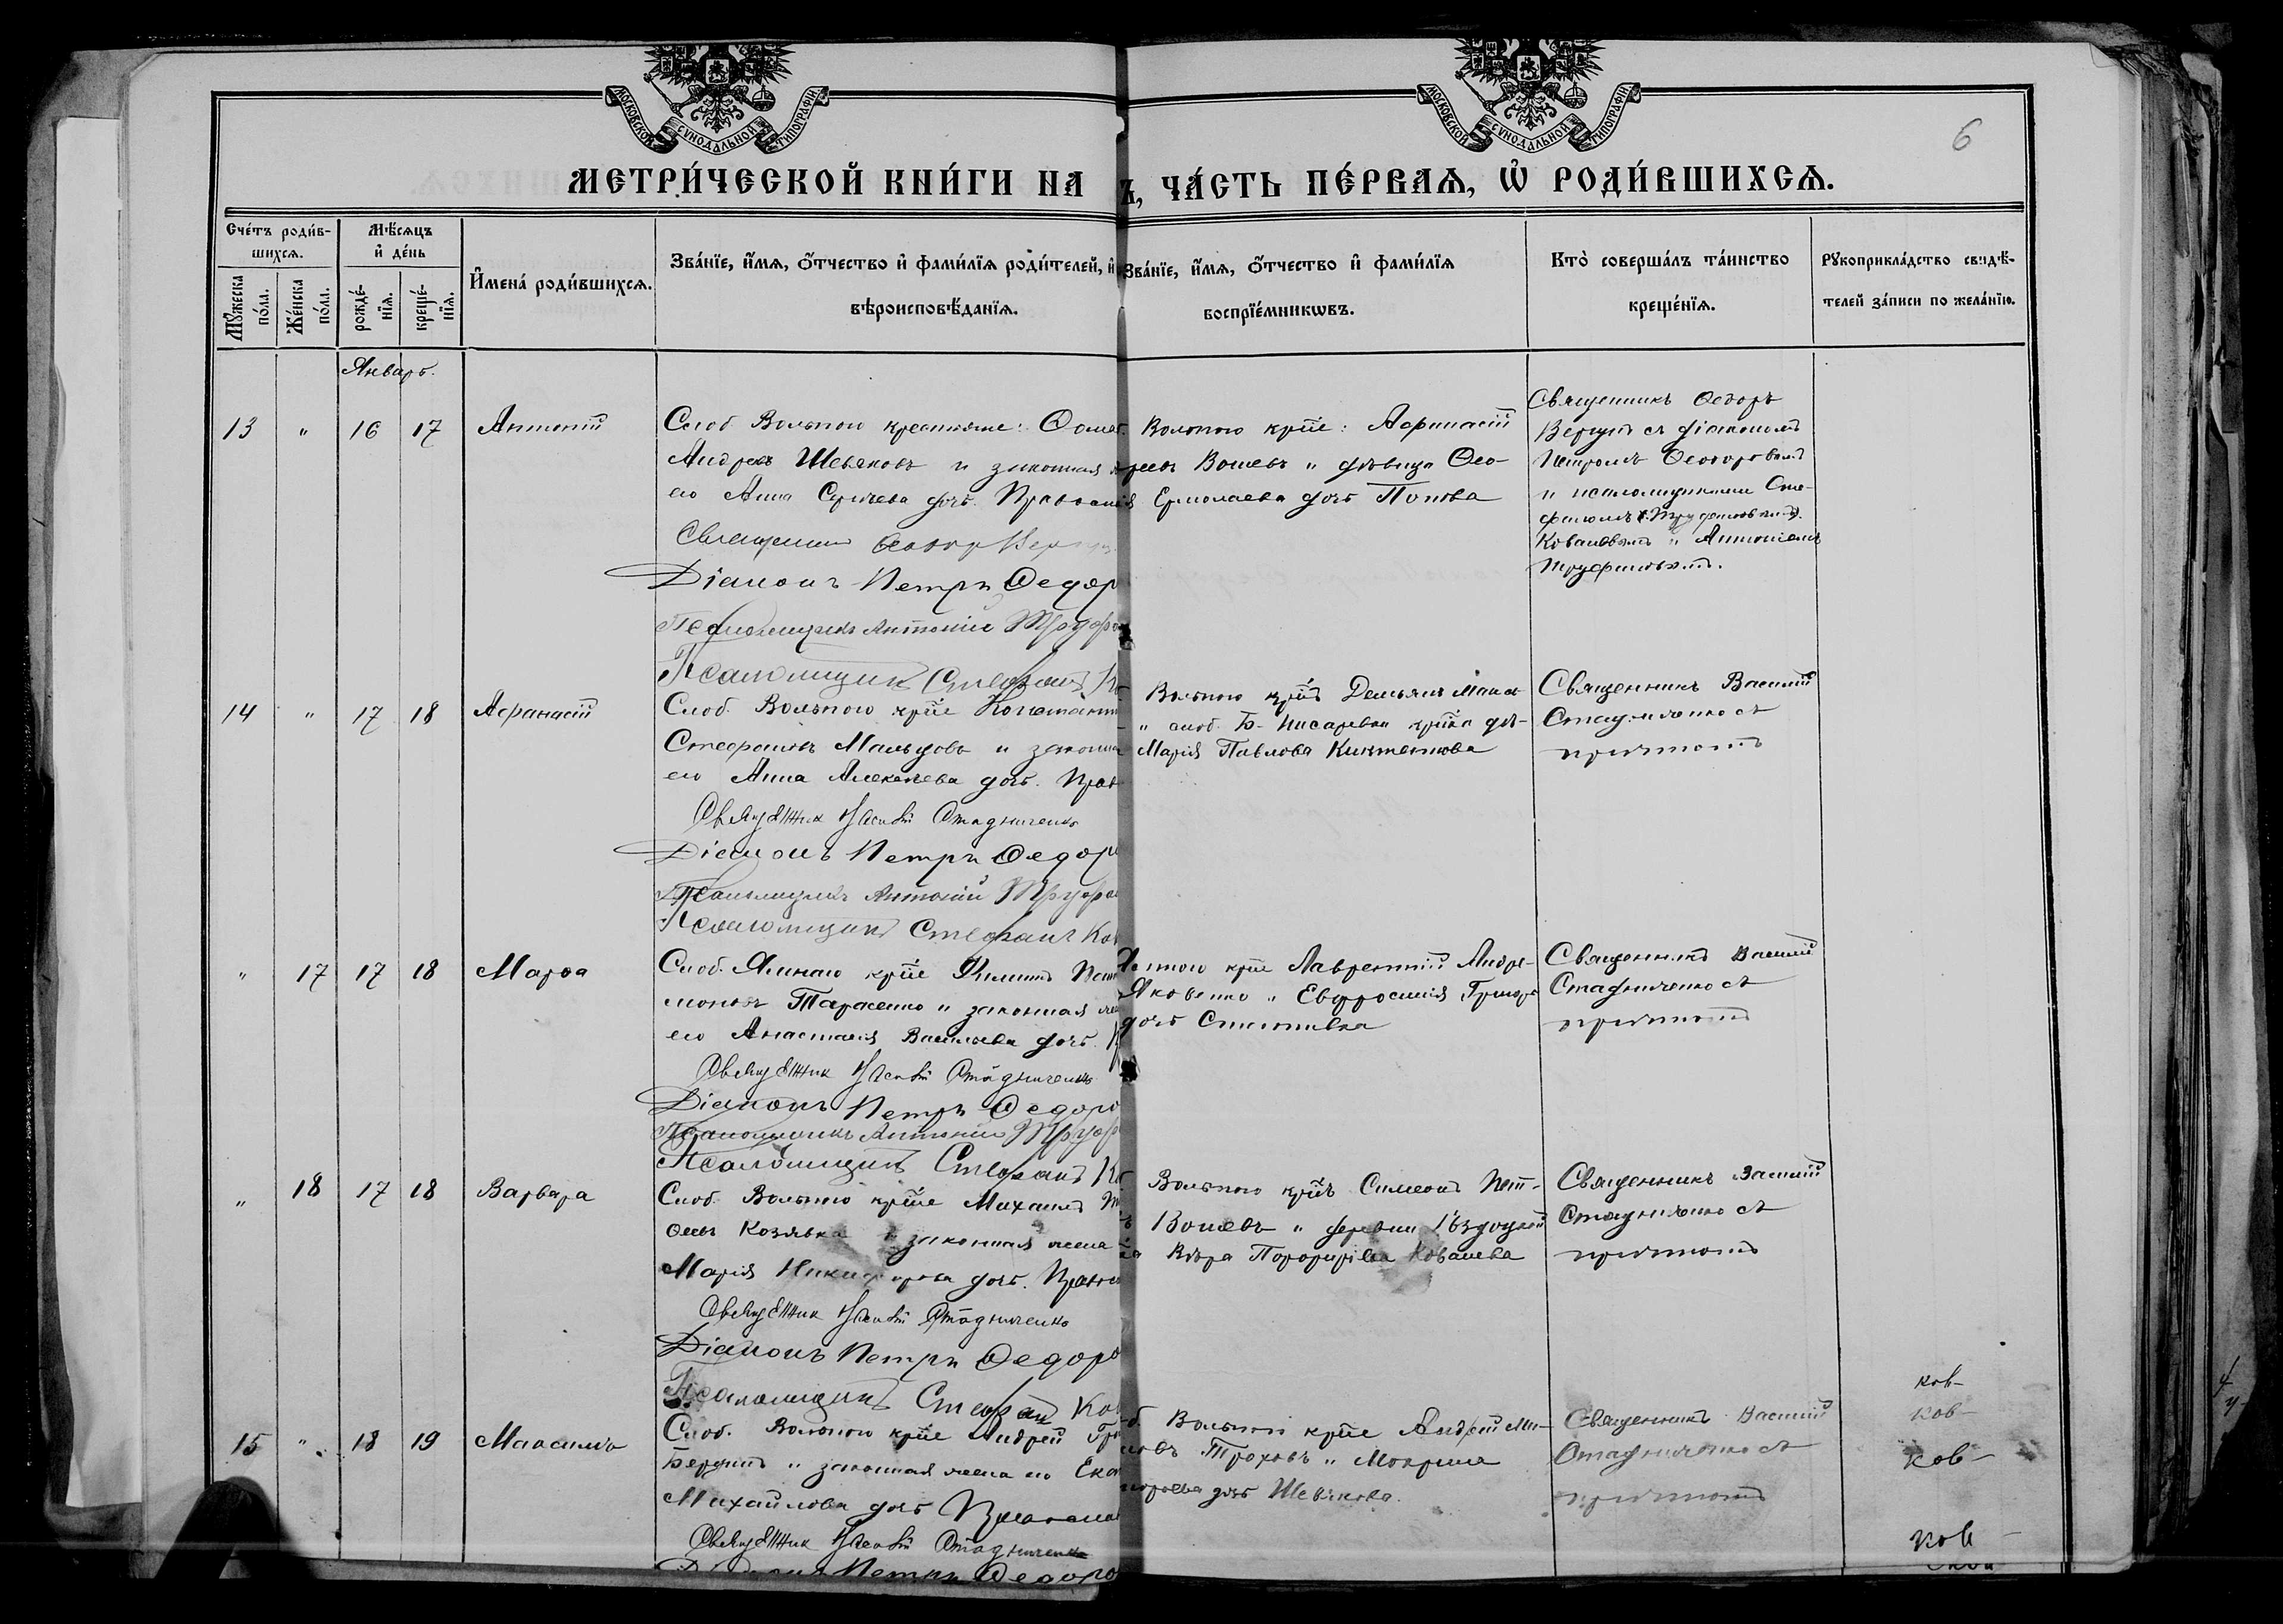 МОСКОВСКОЙ СУНОДАЛЬНОЙ ТИПОГРАФІИ
МОСКОВСКОЙ СУНОДАЛЬНОЙ ТИПОГРАФІИ
6
МЕТРИ́ЧЕСКОЙ КНИ́ГИ НА
Ъ, ЧА́СТЬ ПЕ́РВАѦ, Ѡ҆ РОДИ́ВШИХСѦ.
Сче́тъ роди́в-
шихсѧ.
Мꙋ́жеска
по́ла.
Же́нска
по́ла.
Мѣ́сѧцъ
и҆ де́нь
рожде́-
нїѧ.
креще́-
нїѧ.
И҆мена̀ роди́вшихсѧ.
Зва́нїе, и҆́мѧ, ѻ҆́тчество и҆ фами́лїѧ роди́телей, и҆
вѣроисповѣ́данїѧ.
Зва́нїе, и҆́мѧ, ѻ҆́тчество и҆ фами́лїѧ
воспрїе́мникѡвъ.
Кто̀ соверша́лъ та́инство
креще́нїѧ.
Рꙋкоприкла́дство свидѣ́-
телей за́писи по жела́нїю.
Январь.
13 " 16 17 Антоній
Слоб. Вольного крестьяне:
Андреевъ Шевяковъ и законная
его Анна Сергѣева дочь. Православ
Священникъ Ѳеодоръ
Діаконъ Петръ Ѳедор
Псаломщикъ Антоній Труфа
Псаломщикъ Стефанъ Ко
Вольного крт̃не: Афанасій
Вошевъ и дѣвица Ѳео-
Ермолаева дочь Попова
Священникъ Ѳеодоръ
съ діакономъ
Петромъ Ѳеодоровымъ
и псаломщиками Сте-
фаномъ
Ковалевымъ и Антоніемъ
Труфановымъ.
14 " 17 18 Афанасій
Слоб. Вольного крт̃не Константин
Стефановъ Мальцовъ и законна
его Анна Алексѣева дочь. Прав
Священник Василій Стадниченко
Діаконъ Петръ Ѳедоро
Псаломщикъ Антоній Труфа
Псаломщикъ Стефанъ Ков
Вольного крт̃нъ Демьянъ
" слоб. Б-Писаревки крт̃ка дѣ-
Марія Павлова
Священникъ Василій
Стадниченко съ
причтомъ
" 17 17 18 Марѳа
Слоб. Ямного крт̃не Филиппъ
моновъ Тарасенко и законная же
его Анастасія Васильева дочь.
Священник Василій Стадниченко
Діаконъ Петръ Ѳедоро
Псаломщикъ Антоній Труфа
Псаломщикъ Стефанъ Ко
Ямного крт̃не Лаврентій Андре-
Яковенко и Евфросинія Григор
дочь
Священникъ Василій
Стадниченко съ
причтомъ
" 18 17 18 Варвара
Слоб. Вольного крт̃не Михаилъ
овъ Козявка и законная жена
Марія Никифорова дочь. Правос
Священник Василій Стадниченко
Діаконъ Петръ Ѳедоро
Псаломщикъ Стефан Ков
Вольного крт̃нъ Симеонъ Пет-
Вошевъ и деревни
Вѣра Порфиріева Ковалева
Священникъ Василій
Стадниченко съ
причтомъ
15 " 18 19 Максимъ
Слоб. Вольного крт̃не Андрей Гри
и законная жена его Ека
Михайлова дочь Православ
Священник Василій Стадниченко
Діаконъ Петръ Ѳедоро
б. Вольного крт̃не Андрей Ми-
Троховъ и Мокрина
дочь Шевякова.
Священникъ Василій
Стадниченко съ
причтомъ
ков-
ков-
ков-
ков-